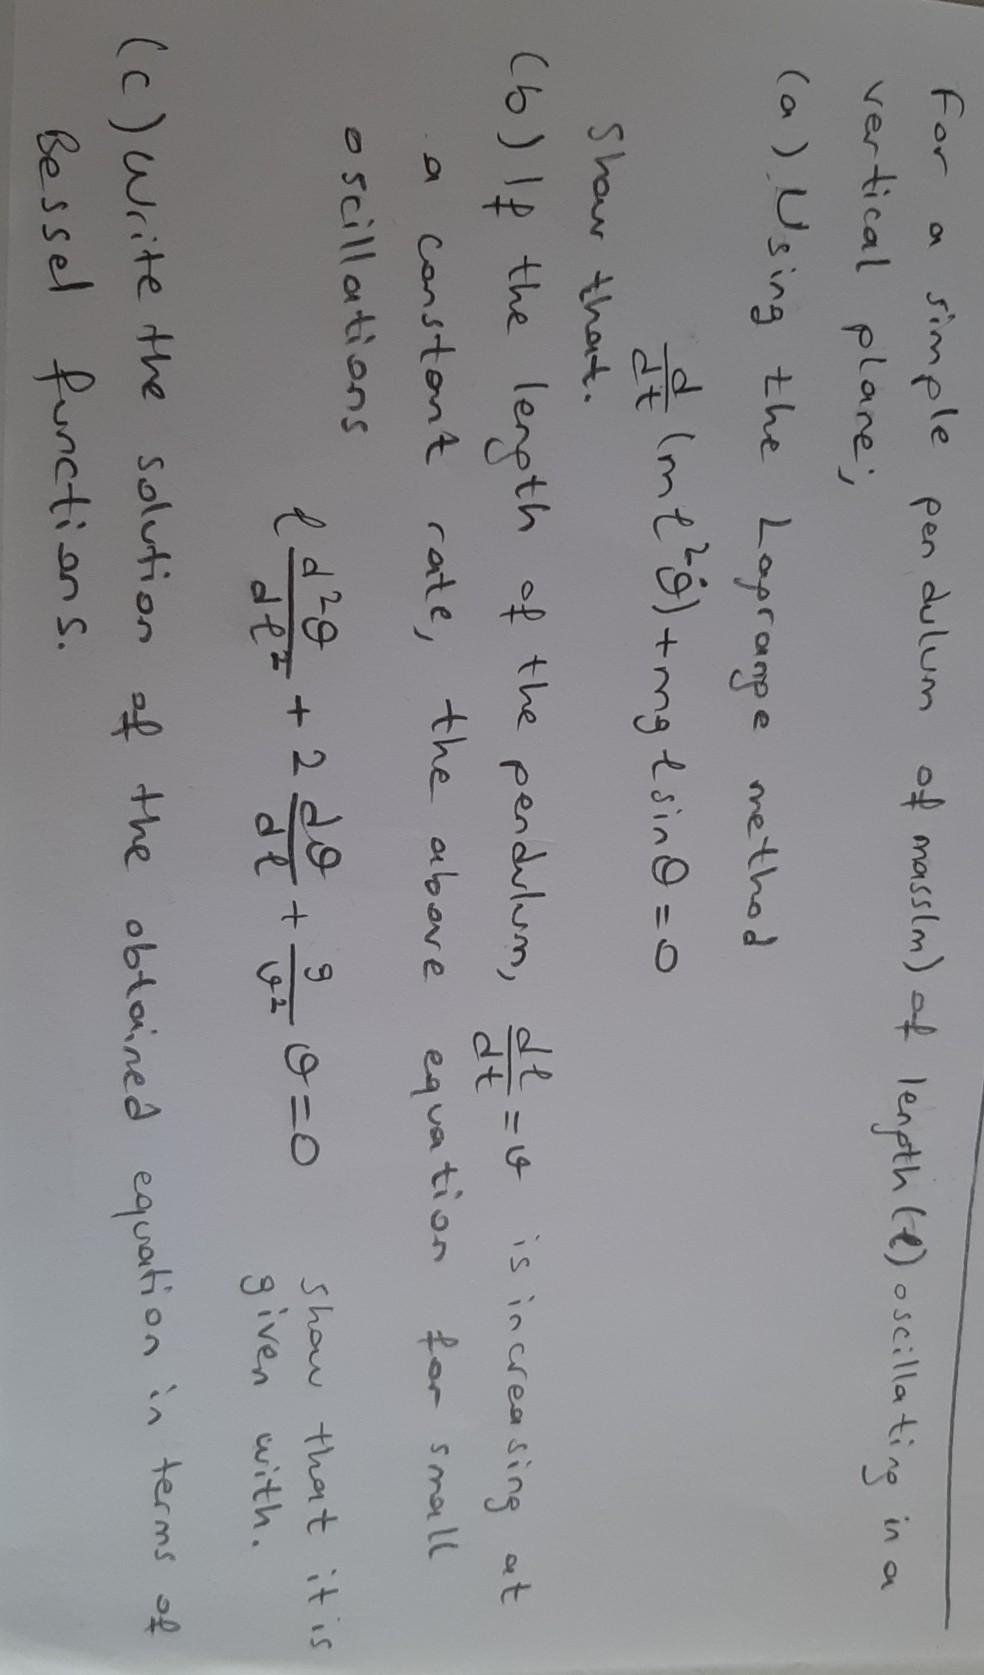 For a simple pendulum of mass(m) of length (ℓ) oscillating in a
vertical plane;
(a) Using the Lagrange method
d/dt (mℓ²θ̇) + mgℓ sinθ = 0
Show that.
(b) If the length of the pendulum, dℓ/dt = v is increasing at
a constant rate, the above equation for small
oscillations
ℓ d²θ/dℓ² + 2 dθ/dℓ + g/v² θ = 0 show that it is
given with.
(c) Write the solution of the obtained equation in terms of
Bessel functions.